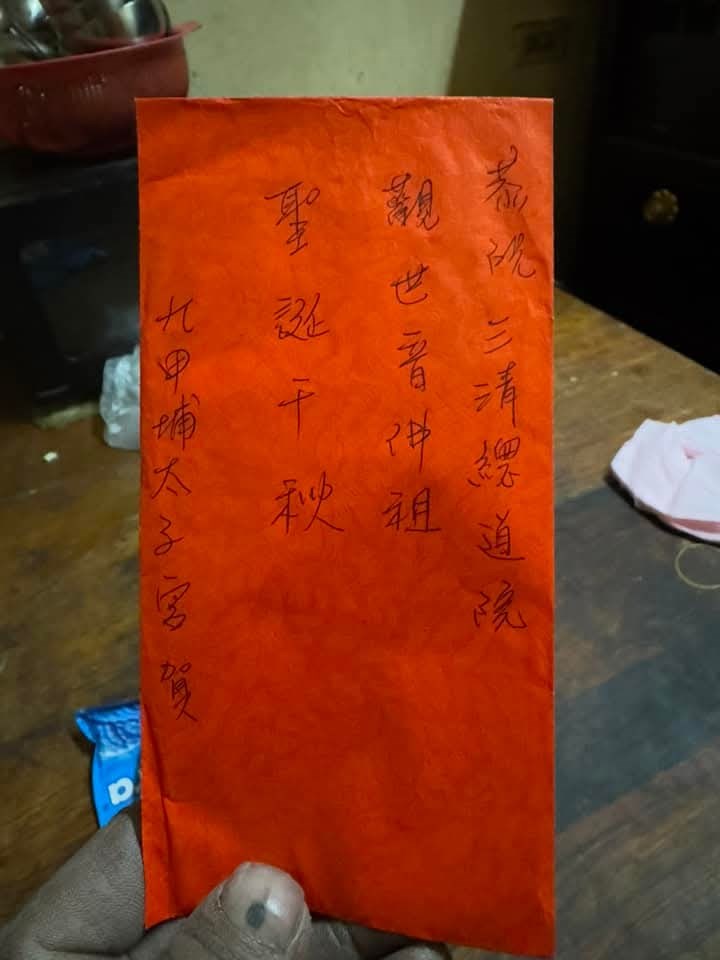 恭祝三清總道院
觀世音佛祖
聖誕千秋
九甲埔太子宮賀
a